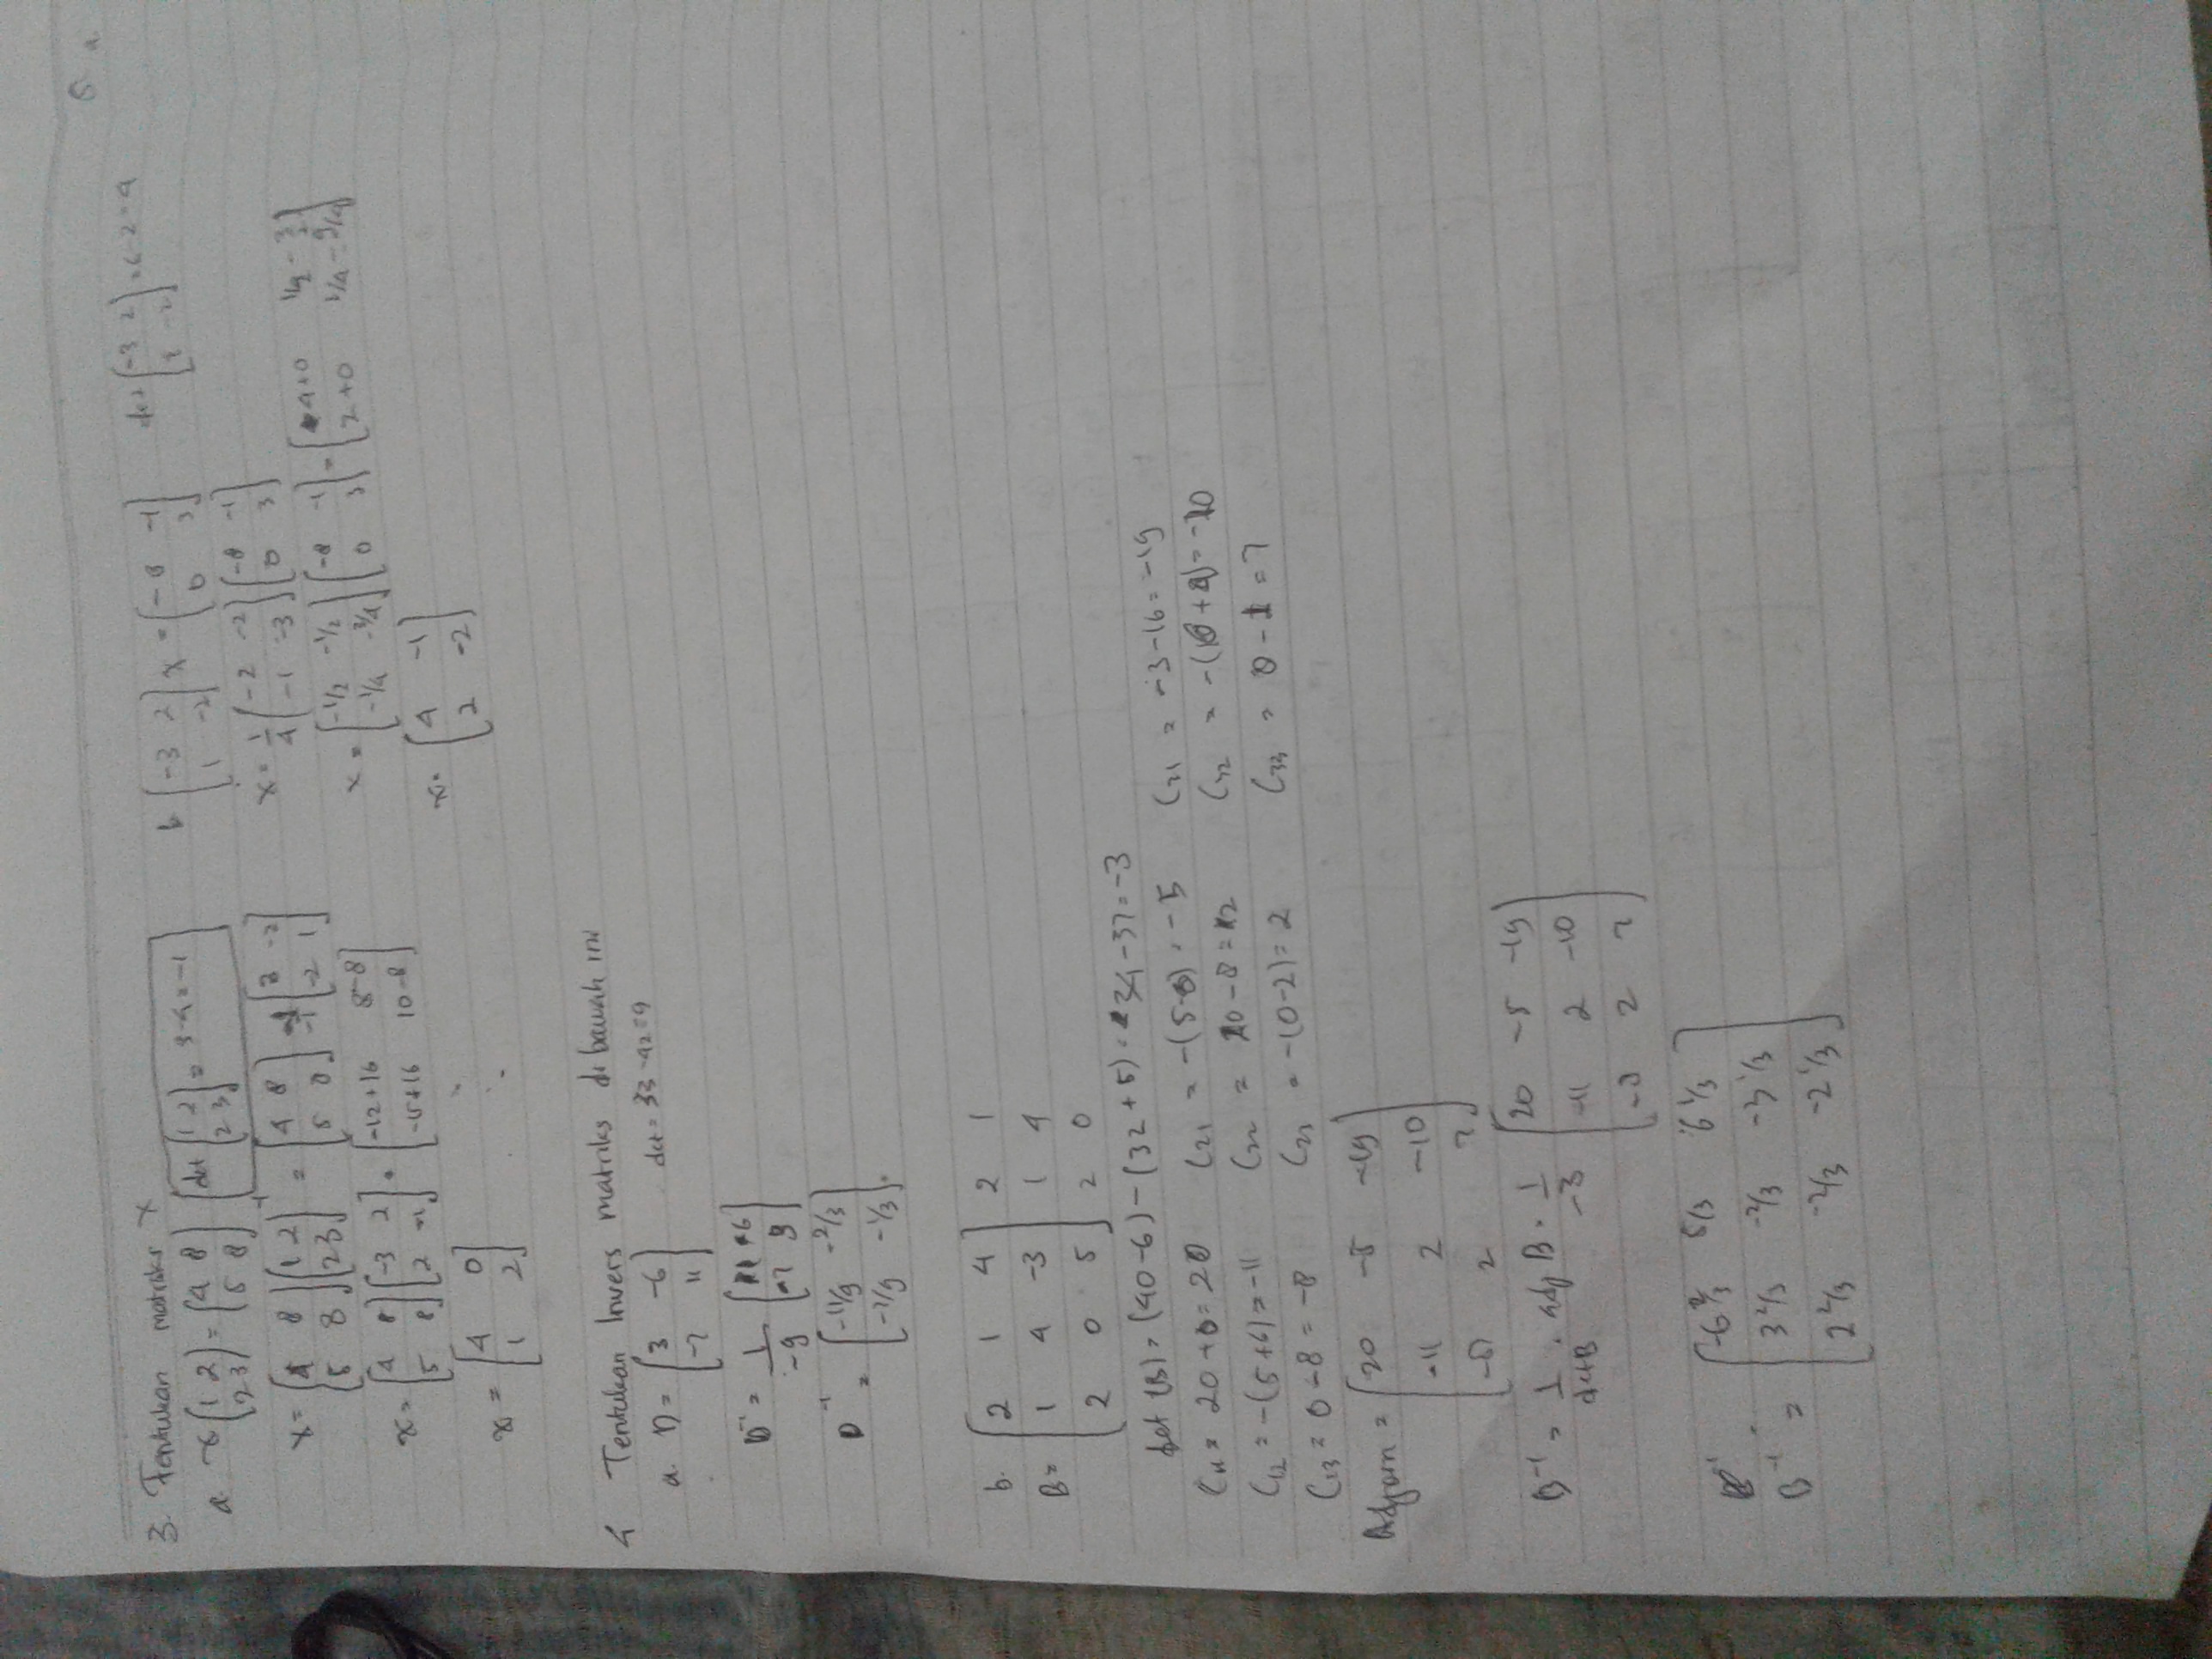 3. Tentukan matriks x
a. x [1 2; 2 3] = [4 8; 5 8] [det [1 2; 2 3] = 3-4 = -1]
x = [4 8; 5 8] [1 2; 2 3]⁻¹ = [4 8; 5 8] 1/-1 [3 -2; -2 1]
x = [4 8; 5 8] [-3 2; 2 -1] = [-12+16 8-8; -15+16 10-8]
x = [4 0; 1 2]
b. [-3 2; 1 -2] x = [-8 -1; 0 3] det [-3 2; 1 -2] = 6-2 = 4
x = 1/4 [-2 -2; -1 -3] [-8 -1; 0 3]
x = [-1/2 -1/2; -1/4 -3/4] [-8 -1; 0 3] = [4+0 1/2 - 3/2; 2+0 1/4 - 9/4]
x = [4 -1; 2 -2]
4 Tentukan Invers matriks di bawah ini
a. D = [3 -6; -7 11] det = 33-42=9
D⁻¹ = 1/-9 [11 6; 7 3]
D⁻¹ = [-11/9 -2/3; -7/9 -1/3].
b.
B = [2 1 4; 1 4 -3; 2 0 5] 2 1; 1 4; 2 0
det (B) = (40-6) - (32+5) = 34-37 = -3
C11 = 20+0 = 20
C12 = -(5+6) = -11
C13 = 0-8 = -8
C21 = -(5-0) = -5
C22 = 10-8 = 2
C23 = -(0-2) = 2
C31 = -3-16 = -19
C32 = -( + ) = -10
C33 = 8-1 = 7
Adjoin = [20 -5 -19; -11 2 -10; -8 2 7]
B⁻¹ = 1/det B . adj B = 1/-3 [20 -5 -19; -11 2 -10; -8 2 7]
B⁻¹ = [-6 2/3 5/3 6 1/3; 3 2/3 -2/3 -3 1/3; 2 2/3 -2/3 -2 1/3]
5 a.